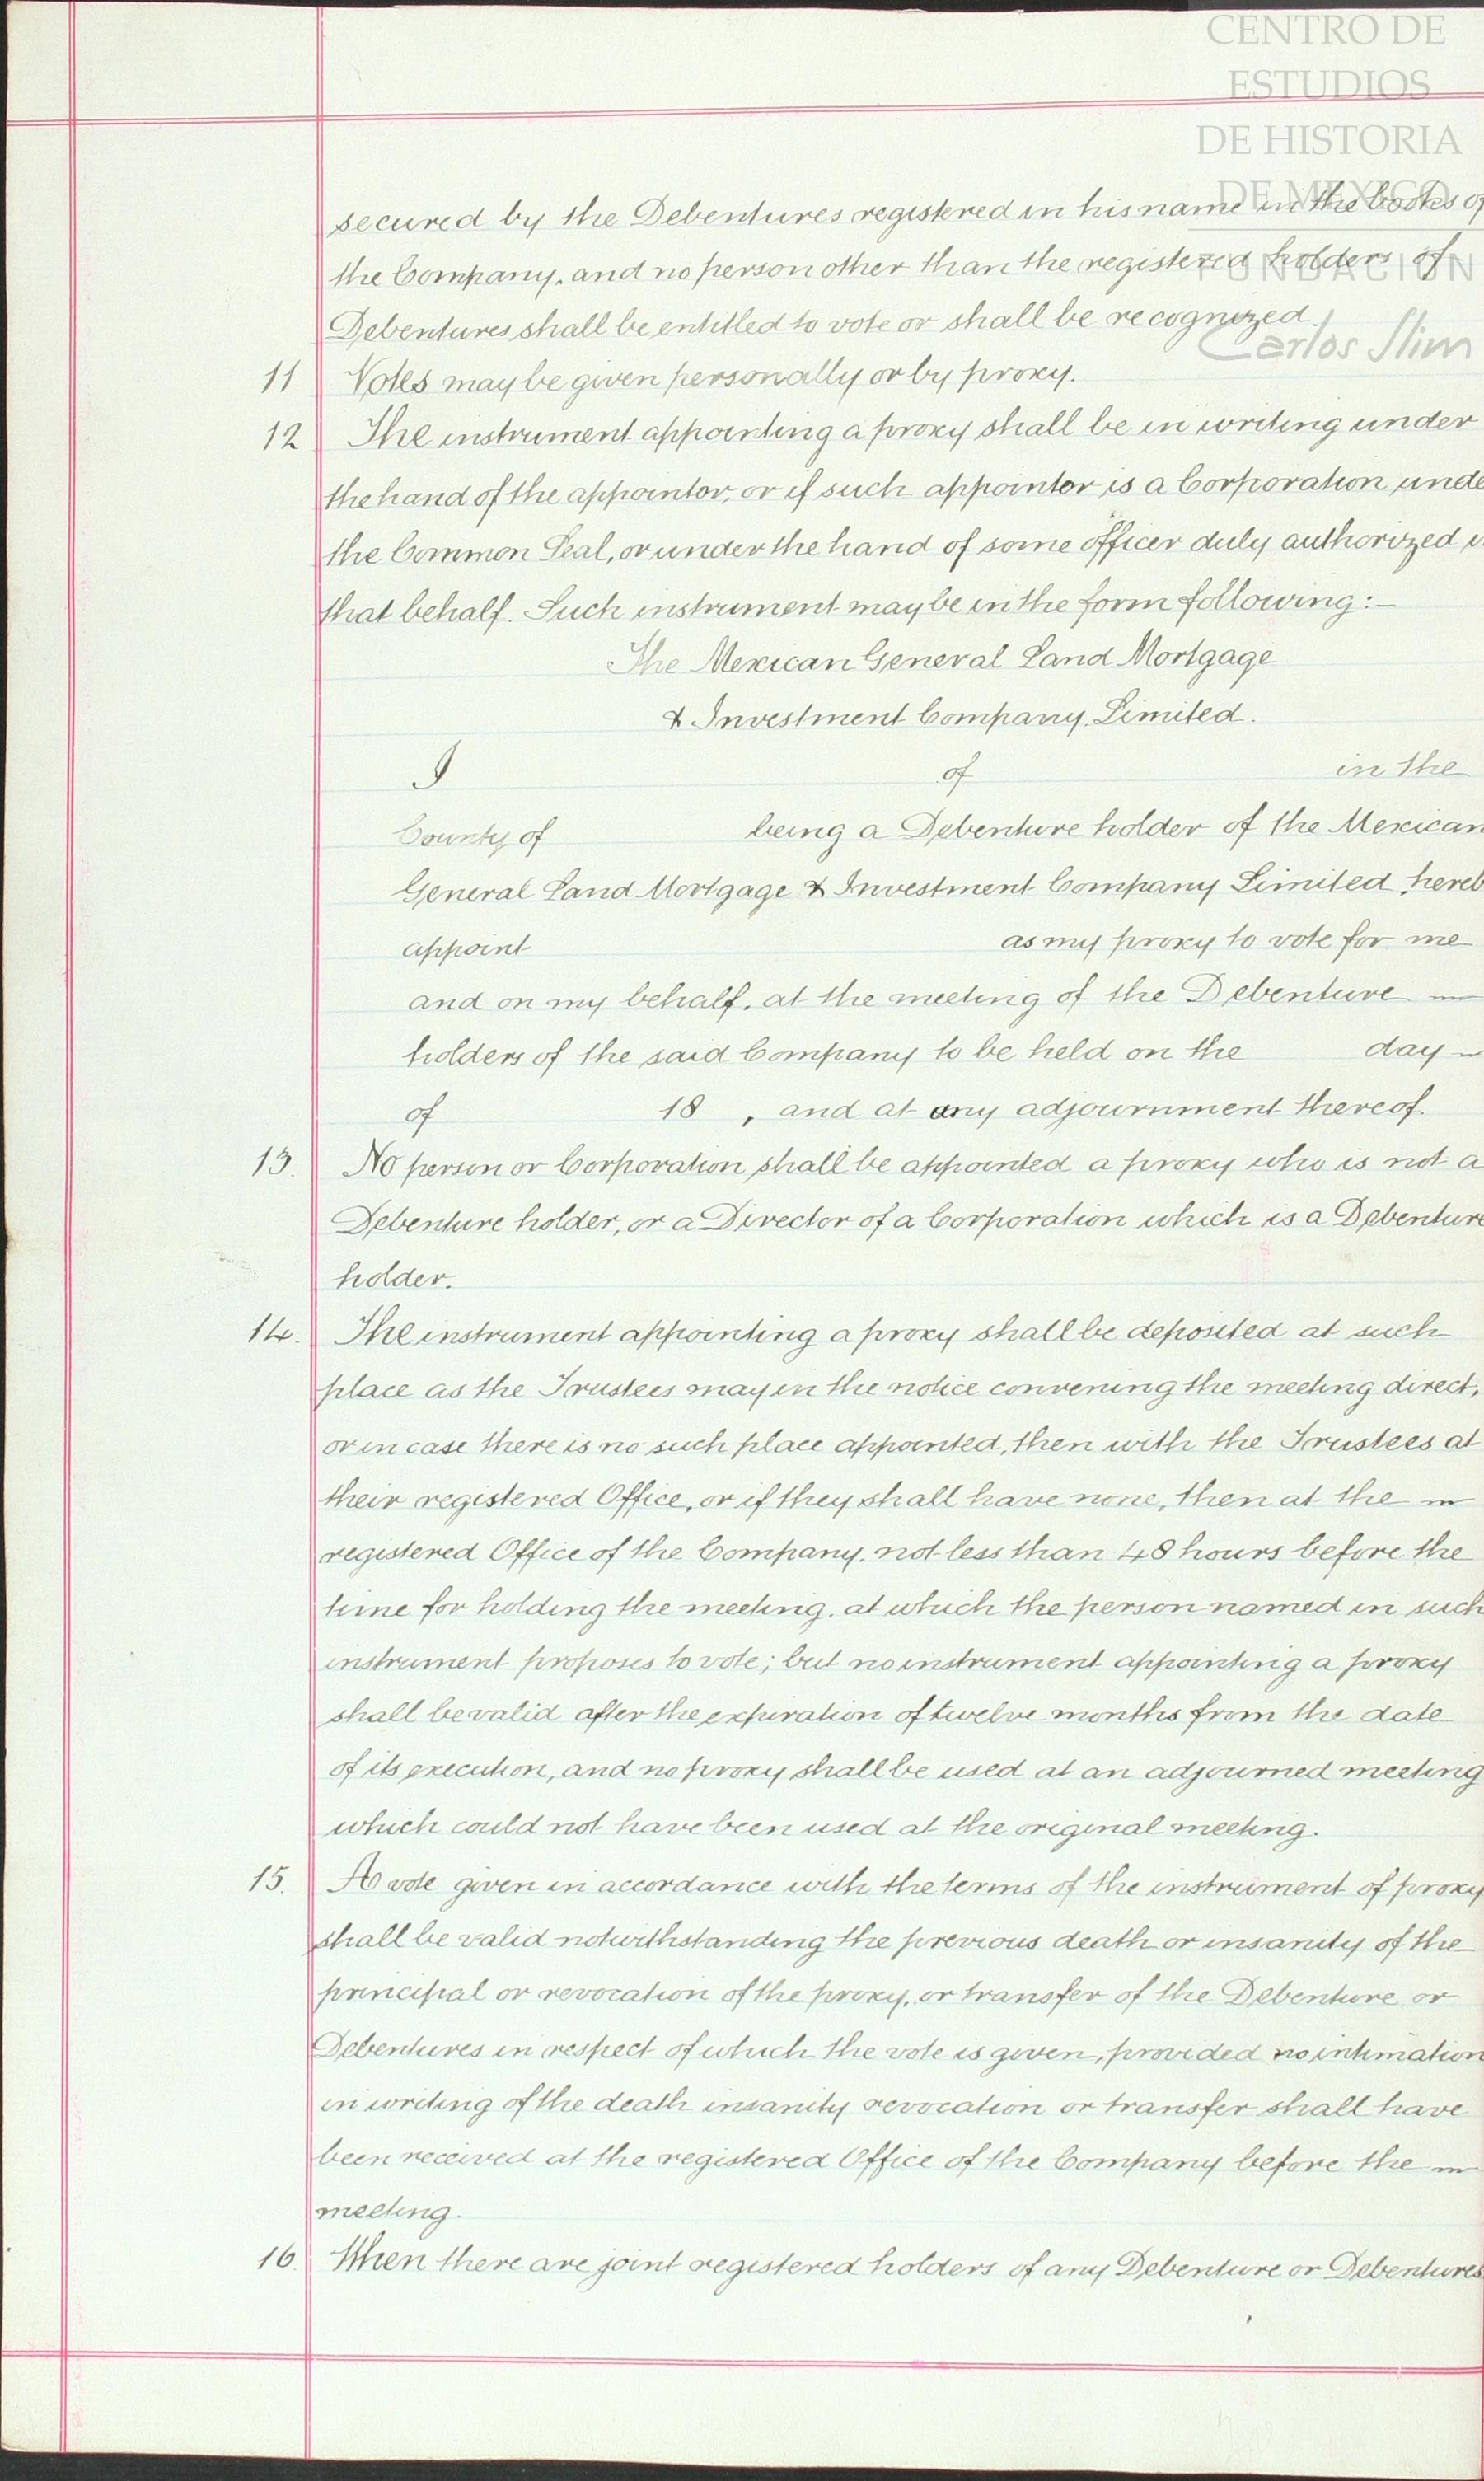 CENTRO DE
ESTUDIOS
DE HISTORIA
DE MEXICO
FUNDACIÓN
Carlos Slim
secured by the Debentures registered in his name in the books of
the Company, and no person other than the registered holders of
Debentures shall be entitled to vote or shall be recognized.
11 Votes may be given personally or by proxy.
12 The instrument appointing a proxy shall be in writing under
the hand of the appointor, or if such appointor is a Corporation unde
the Common Seal, or under the hand of some officer duly authorized i
that behalf. Such instrument may be in the form following:—
The Mexican General Land Mortgage
& Investment Company Limited.
I of in the
County of being a Debenture holder of the Mexican
General Land Mortgage & Investment Company Limited, hereb
appoint as my proxy to vote for me
and on my behalf, at the meeting of the Debenture
holders of the said Company to be held on the day
of 18 , and at any adjournment thereof.
13. No person or Corporation shall be appointed a proxy who is not a
Debenture holder, or a Director of a Corporation which is a Debenture
holder.
14. The instrument appointing a proxy shall be deposited at such
place as the Trustees may in the notice convening the meeting direct,
or in case there is no such place appointed, then with the Trustees at
their registered Office, or if they shall have none, then at the
registered Office of the Company, not less than 48 hours before the
time for holding the meeting, at which the person named in such
instrument proposes to vote; but no instrument appointing a proxy
shall be valid after the expiration of twelve months from the date
of its execution, and no proxy shall be used at an adjourned meeting
which could not have been used at the original meeting.
15. A vote given in accordance with the terms of the instrument of proxy
shall be valid notwithstanding the previous death or insanity of the
principal or revocation of the proxy, or transfer of the Debenture or
Debentures in respect of which the vote is given, provided no intimation
in writing of the death insanity revocation or transfer shall have
been received at the registered Office of the Company before the
meeting.
16. When there are joint registered holders of any Debenture or Debentures